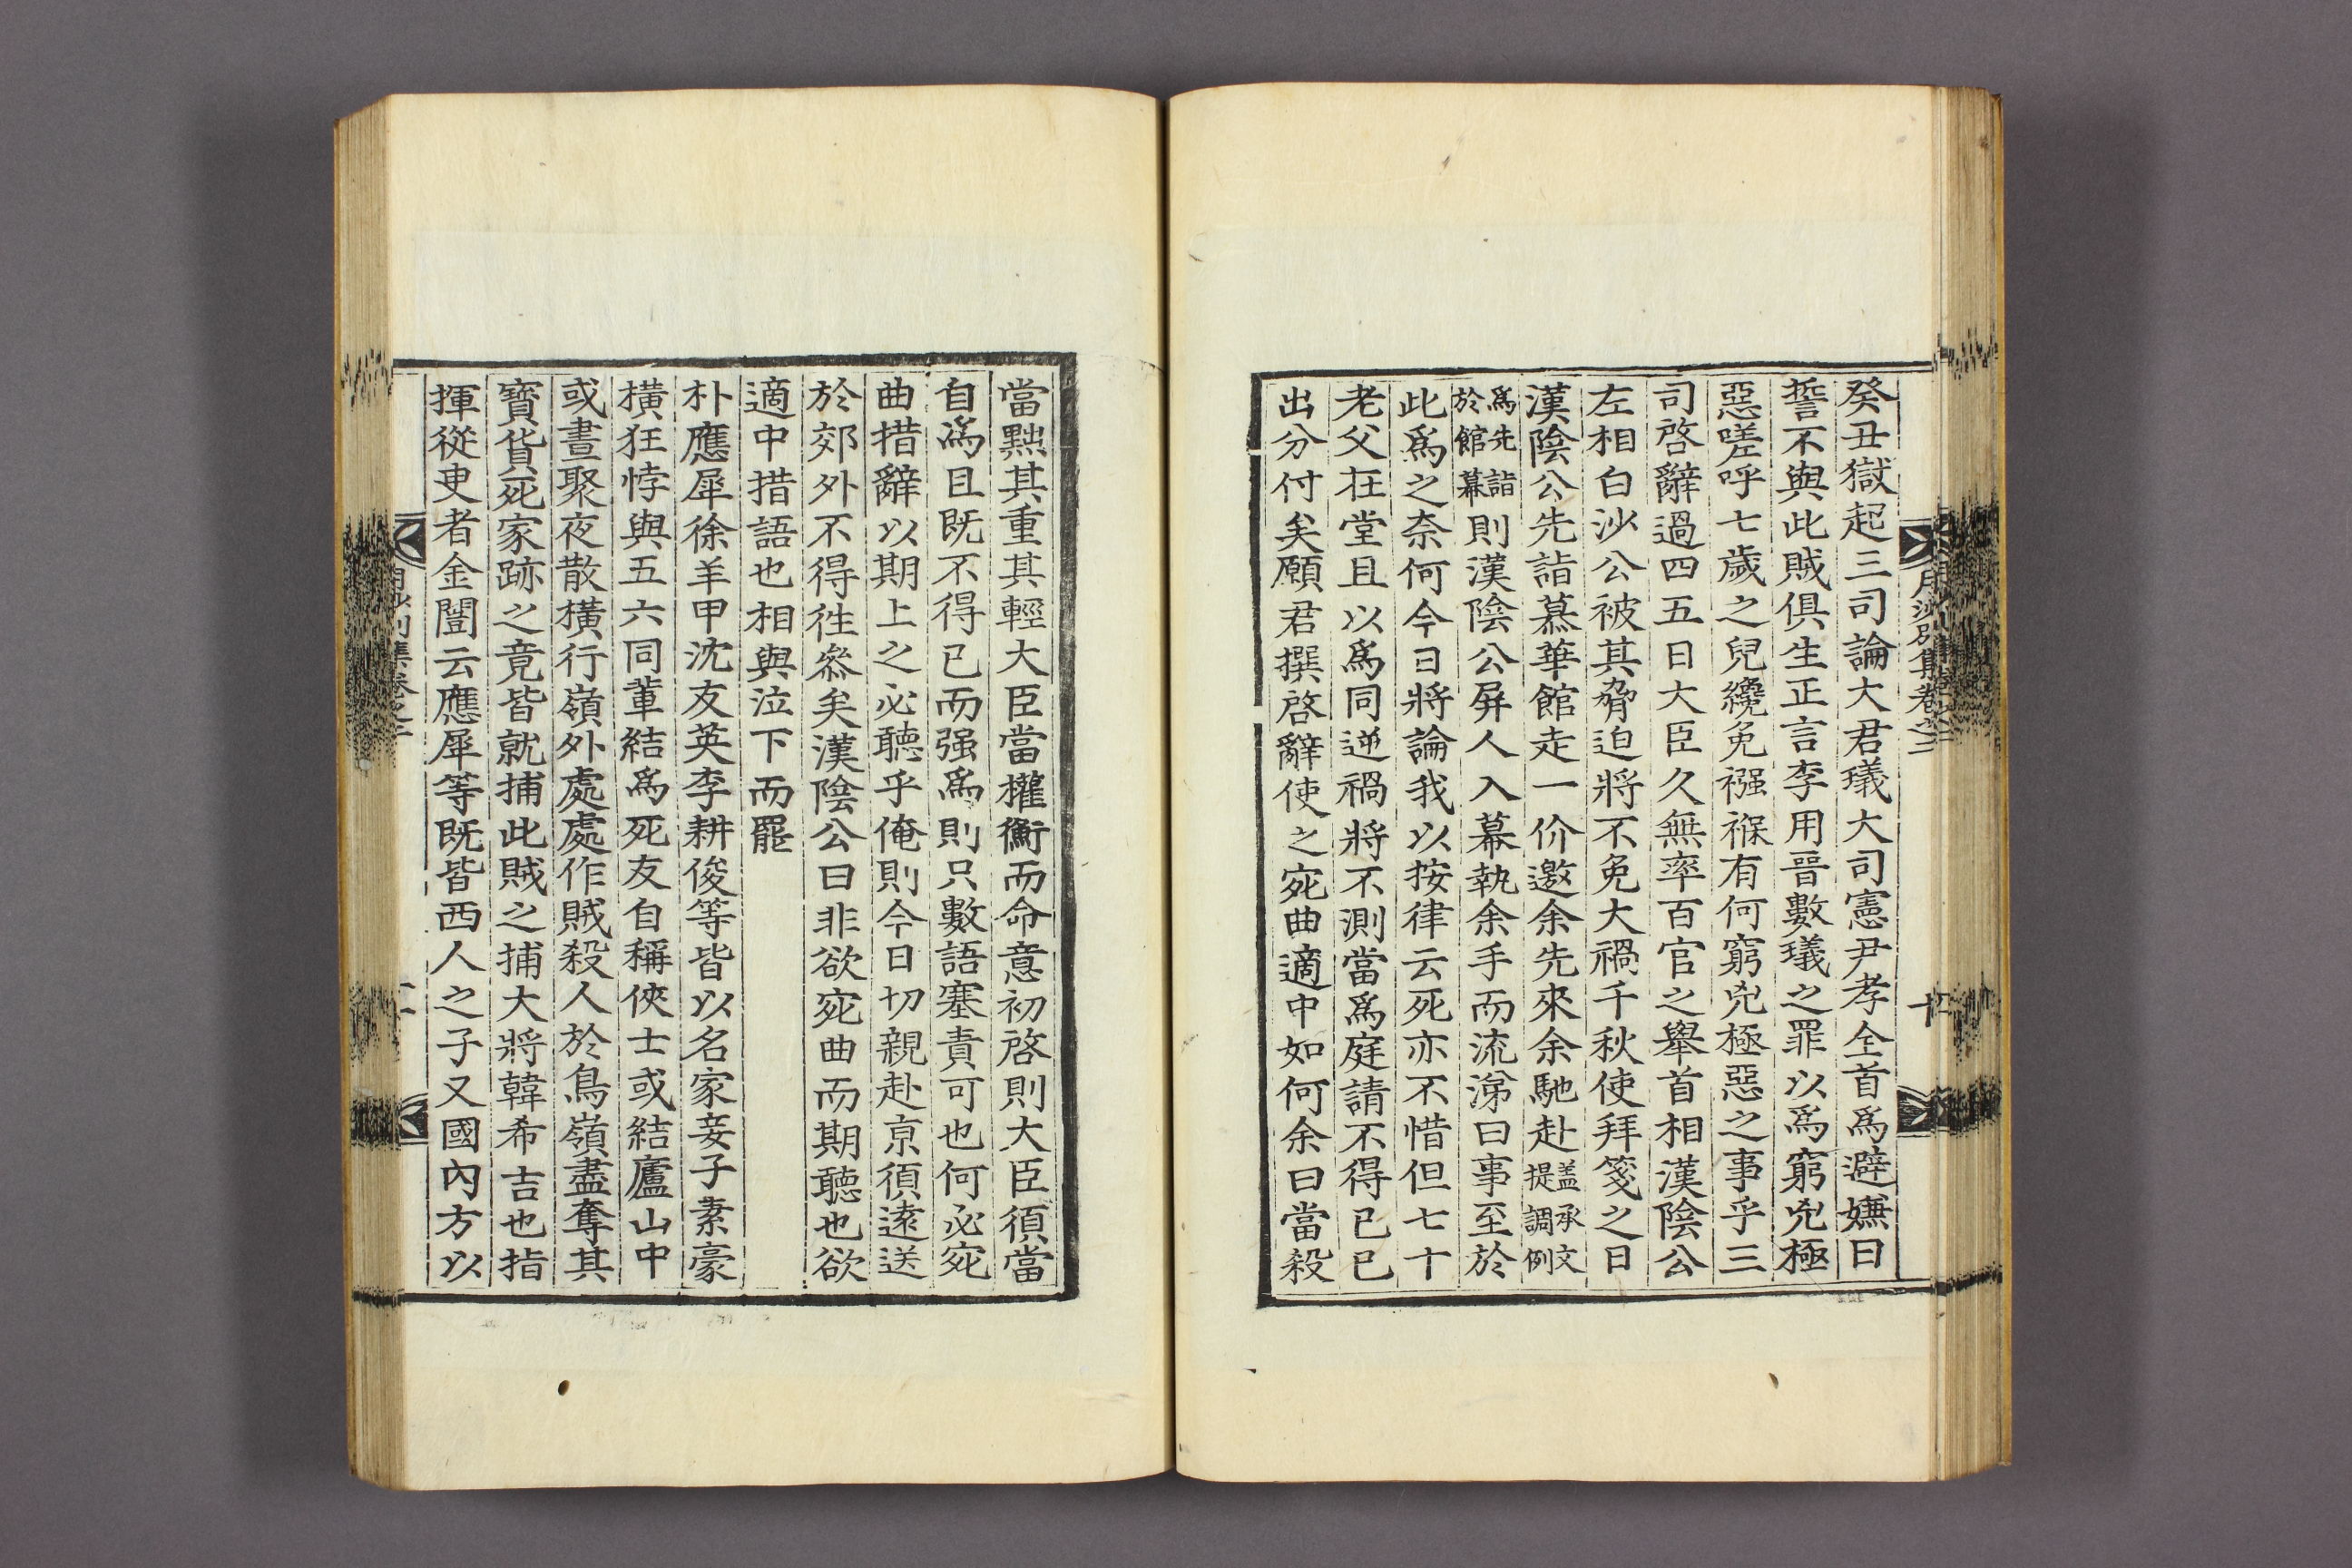 癸丑獄起三司論大君㼁大司憲尹孝全首爲避嫌曰
誓不與此賊俱生正言李用晉數㼁之罪以爲窮兇極
惡嗟呼七歲之兒纔免襁褓有何窮兇極惡之事乎三
司啓辭過四五日大臣久無率百官之舉首相漢陰公
左相白沙公被其脅迫將不免大禍千秋使拜箋之日
漢陰公先詣慕華館走一价邀余先來余馳赴盖承文提調例
爲先詣於館幕則漢陰公屛人入幕執余手而流涕曰事至於
此爲之奈何今日將論我以按律云死亦不惜但七十
老父在堂且以爲同逆禍將不測當爲庭請不得已已
出分付矣願君撰啓辭使之宛曲適中如何余曰當殺
當黜其重其輕大臣當權衡而命意初啓則大臣須當
自爲且既不得已而强爲則只數語塞責可也何必宛
曲措辭以期上之必聽乎俺則今日切親赴京須遠送
於郊外不得徃叅矣漢陰公曰非欲宛曲而期聽也欲
適中措語也相與泣下而罷
朴應犀徐羊甲沈友英李耕俊等皆以名家妾子素豪
橫狂悖與五六同輩結爲死友自稱俠士或結廬山中
或晝聚夜散橫行嶺外處處作賊殺人於鳥嶺盡奪其
寶貨死家跡之竟皆就捕此賊之捕大將韓希吉也指
揮從吏者金闓云應犀等既皆西人之子又國內方以
月沙別集卷之三
十